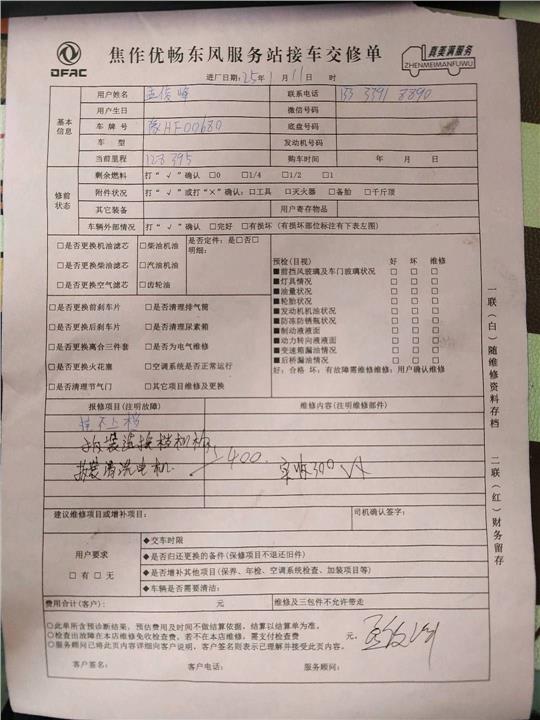 DFAC
焦作优畅东风服务站接车交修单
真美满服务
ZHENMEIMANFUWU
进厂日期：25年1月11日 时
基本信息
用户姓名 孟俊峰 联系电话 133 3391 8890
用户生日 微信号码
车 牌 号 豫HF00680 底盘号码
车 型 发动机号码
当前里程 123395 购车时间 年 月 日
修前状态
剩余燃料 打“√”确认 □0 □1/4 □1/2 □1
附件状况 打“√”或打“×”确认：□工具 □灭火器 □备胎 □千斤顶
其它装备 用户寄存物品
车辆外部情况 打“√”确认 □完好 □有损坏（有损坏部位标注有下表左图）
□是否更换机油滤芯 □柴油机油
□是否更换柴油滤芯 □汽油机油
□是否更换空气滤芯 □齿轮油
是否定件：是□否□
明细：
□是否更换前刹车片 □是否清理排气筒
□是否更换后刹车片 □是否清理尿素箱
□是否更换离合三件套 □是否为电气维修
□是否更换火花塞 □空调系统是否正常运行
□是否清理节气门 □其它项目维修及更换
预检（目视） 好 坏 维修
■前挡风玻璃及车门玻璃状况 □ □ □
■灯具情况 □ □ □
■油量状况 □ □ □
■轮胎状况 □ □ □
■发动机机油状况 □ □ □
■防冻防锈瓶状况 □ □ □
■制动液液面 □ □ □
■动力转向液液面 □ □ □
■变速箱漏油情况 □ □ □
■后桥漏油情况 □ □ □
好：合格 坏：有故障需维修维修：用户确认维修
报修项目（注明故障） 维修内容（注明维修部件）
挂不上档
拆装清洗电机
400
300
建议维修项目或增补项目： 司机确认签字：
用户要求
□有 □无
◆交车时限
◆是否归还更换的备件（保修项目不退还旧件）
◆是否增补其他项目（保养、年检、空调系统检查、加装项目等）
◆车辆是否需要清洁：
费用合计（客户）： 元 维修及三包件不允许带走
○此单所含预诊断结果，预估费用及时间不做结算依据，结算以结算单为准。
○检查出故障在本店维修免收检查费，若不在本店维修，需支付检查费 元。
○服务顾问已将此页内容详细向客户说明，客户签名则表示已理解并接受此页内容。
客户签名： 客户电话： 服务顾问：
一联（白）随维修资料存档
二联（红）财务留存